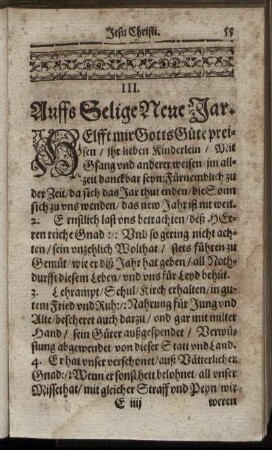 Jesu Christi. 55
III.
Auffs Selige Neue Jar.
HElfft mir Gotts Güte prei-
sen / ihr lieben Kinderlein / Mit
Gsang und anderer weisen jm all-
zeit danckbar seyn: Fürnemblich zu
der Zeit / da sich das Jar thut enden / die Sonn
sich zu uns wenden / das new Jahr ist nit weit.
2. Ernstlich last uns betrachten / deß HEr-
ren reiche Gnad :/: Und so gering nicht ach-
ten / sein unzehlich Wolthat / stets führen zu
Gemüt / wie er diß Jahr hat geben / all Noth-
durfft diesem Leben / und uns für Leyd behüt.
3. Lehrampt / Schul / Kirch erhalten / in gu-
tem Fried und Ruh :/: Nahrung für Jung und
Alte / bescheret auch darzu / und gar mit milter
Hand / sein Gürer außgespendet / Verwü-
stung abgewendet von dieser Statt und Land.
4. Er hat unser verschonet / auß Vätterlicher
Gnad :/: Wenn er sonst hett belohnet / all unser
Missethat / mit gleicher Straff und Peyn / wir
E iiij weren